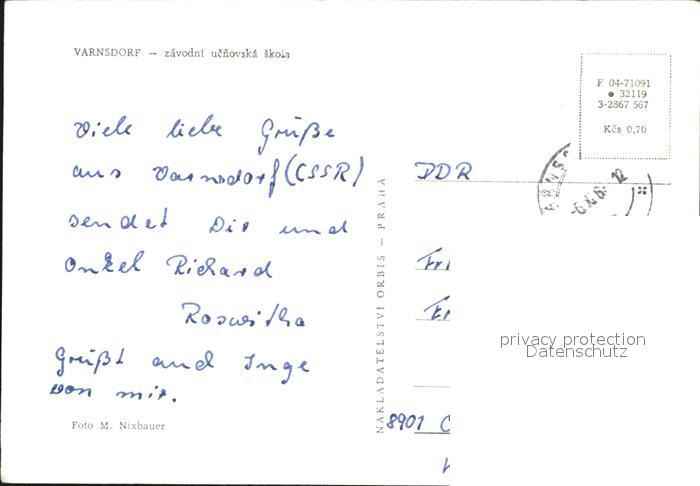 VARNSDORF — závodní učňovská škola
F 04-71091
● 32119
3-2867 567
Kčs 0,70
Viele liebe Grüße
aus Varnsdorf (CSSR)
sendet Dir und
Onkel Richard
Roswitha
Grüßt auch Inge
von mir.
Foto M. Nixbauer
NAKLADATELSTVÍ ORBIS — PRAHA
DDR
8901
privacy protection
Datenschutz